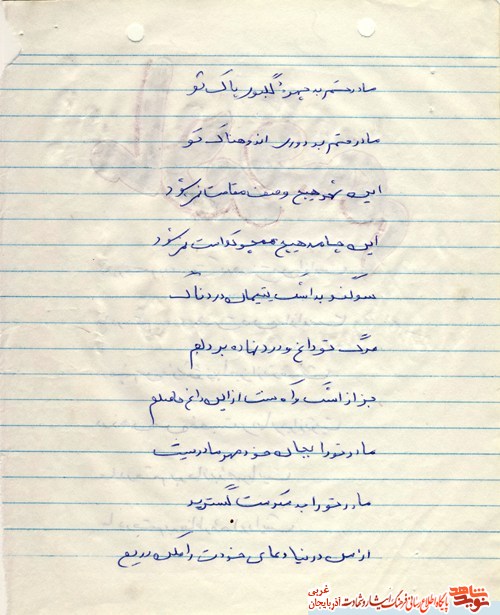 مادر قسم به چهرهٔ گلبوی پاک تو
مادر قسم به دوری اندوهناک تو
این شعر هیچ وصف مقامت نمی‌شود
این جامه هیچ همچو کدامت نمی‌شود
سوگند به اشک یتیمان دردناک
مرگ تو داغ و درد نهاده بر دلم
جز از اشک و آه ست از این داغ حاصلم
مادر تو را بجان خود مهر مادریت
مادر تو را به مکرمت گسترید
از من در نیاد دعای خودت را مکن دریغ
نوید شاهد
پایگاه اطلاع رسانی فرهنگ ایثار و شهادت آذربایجان غربی